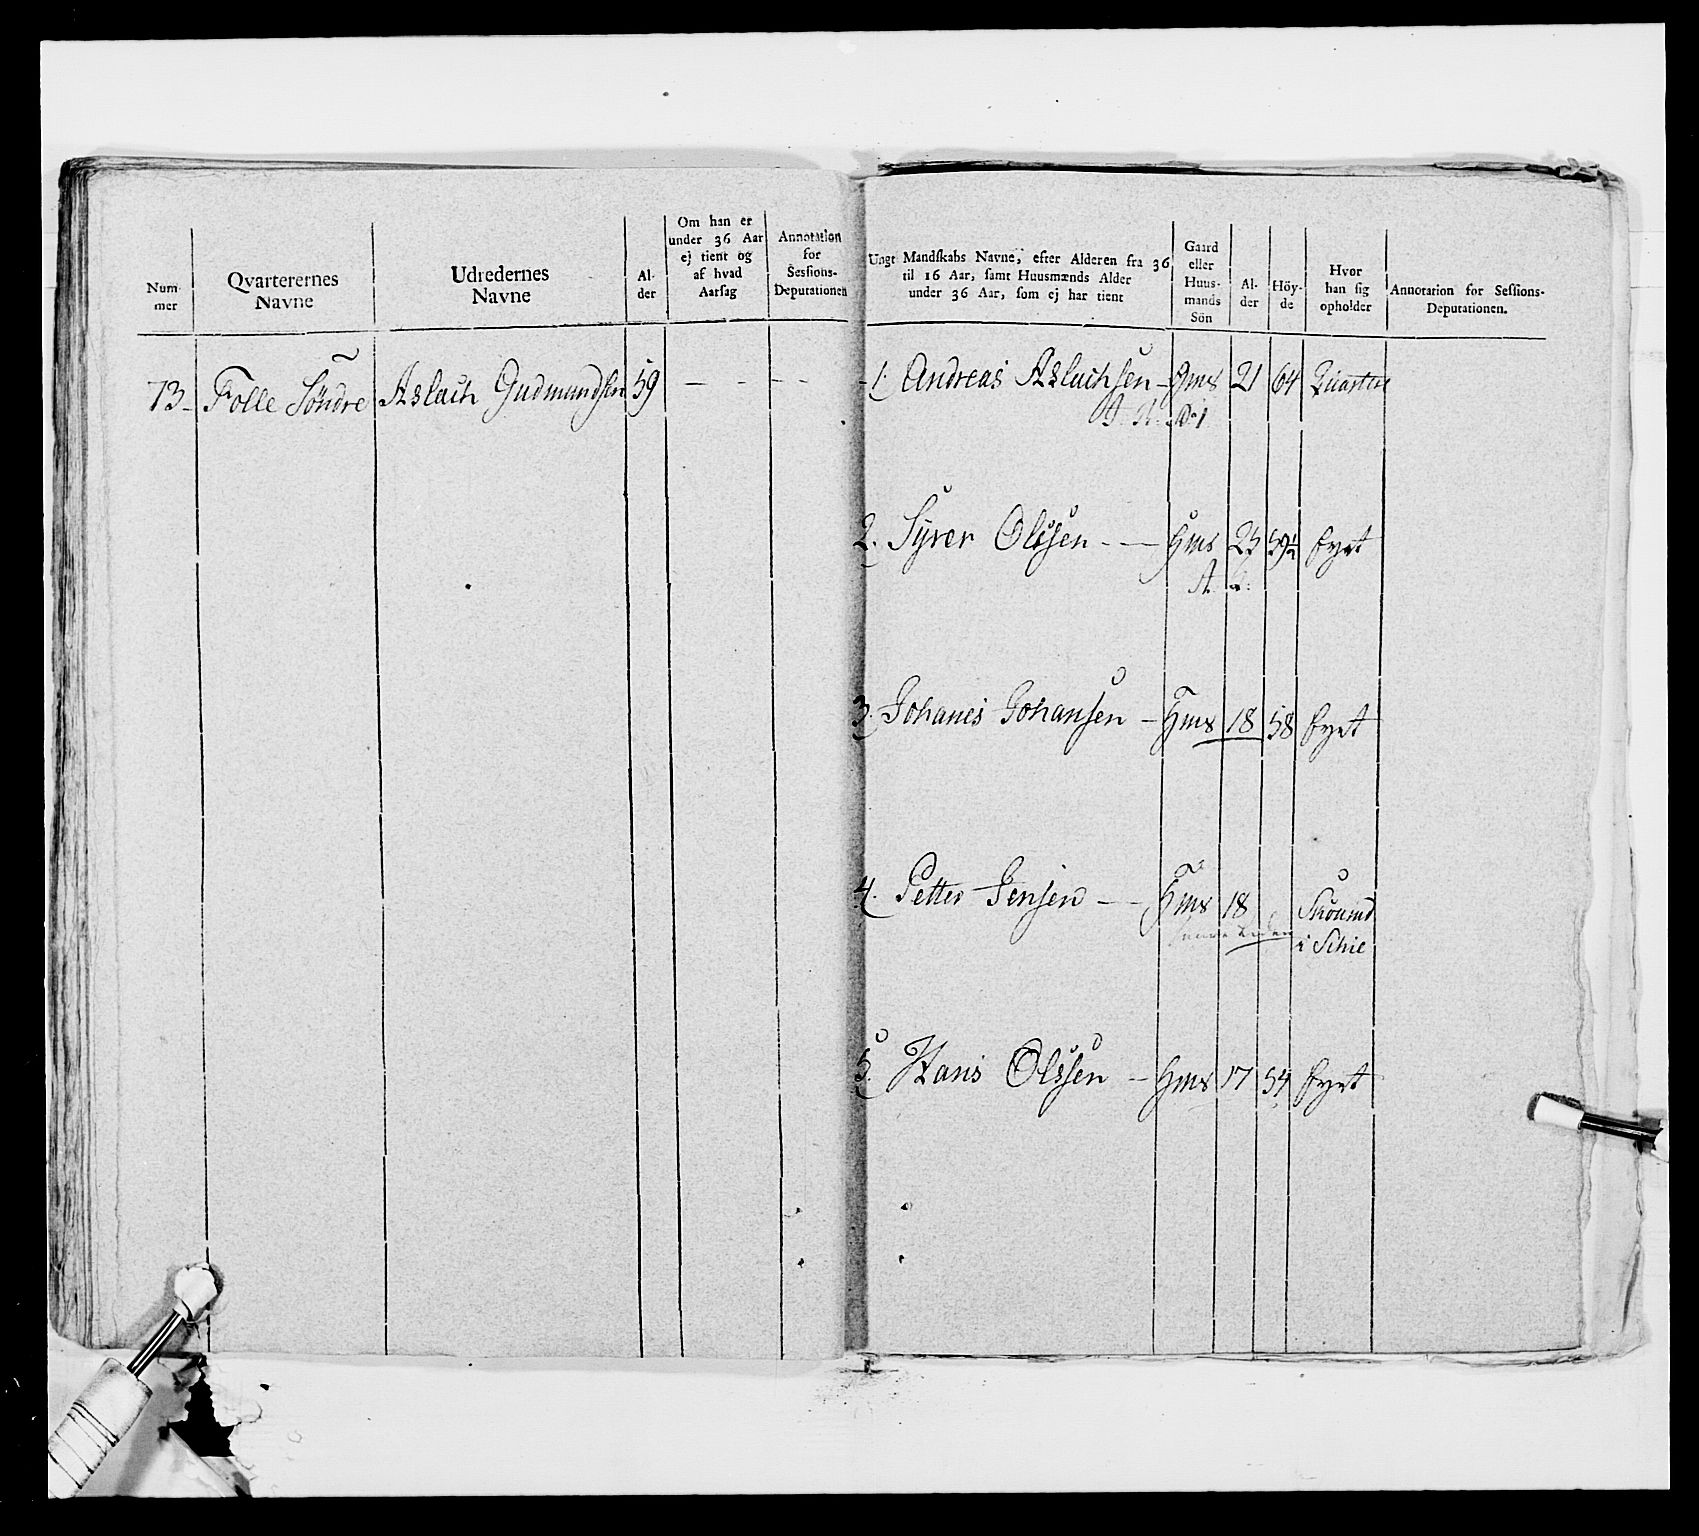 Num-
mer
Qvarterernes
Navne
Udredernes
Navne
Al-
der
Om han er
under 36 Aar
ej tient og
af hvad
Aarsag
Annotation
for
Sessions-
Deputationen
73 Folle Söndre Aslach Gudmundsen 59
Ungt Mandskabs Navne, efter Alderen fra 36
til 16 Aar, samt Huusmænds Alder
under 36 Aar, som ej har tient
Gaard
eller
Huus-
mands
Sön
Al-
der
Höy-
de
Hvor
han sig
opholder
Annotation for Sessions-
Deputationen.
1. Andreas Aslachsen - Gms 21 64 Quarteer
2. Syver Olssen - - Hms 25 59½ byet
3. Johanes Johansen - Hms 18 58 byet
4. Petter Jensen - - Hms 18
i Schie
5. Hans Olssen - Hms 17 54 byet